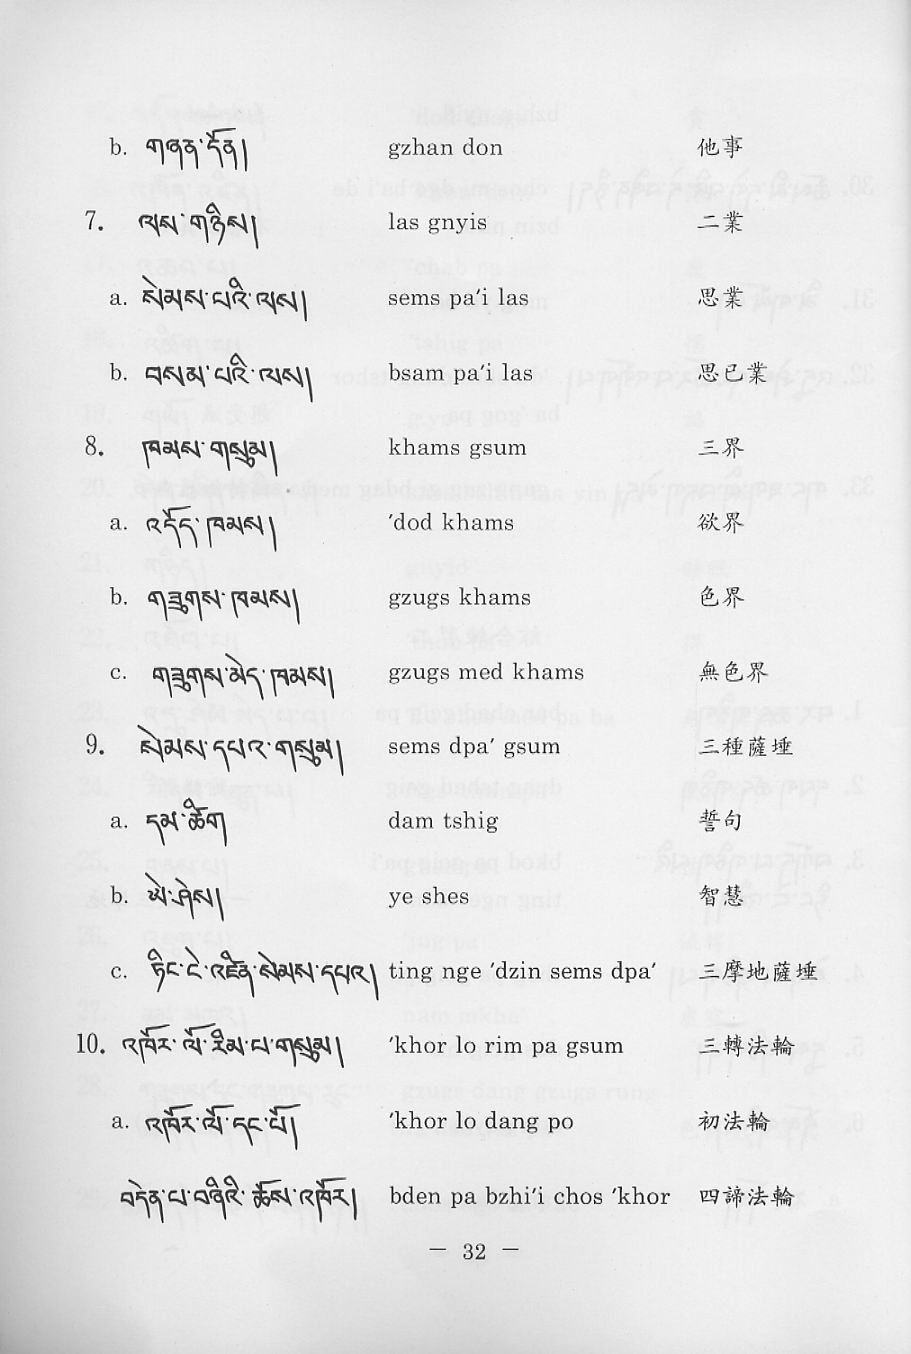 b. གཞན་དོན། gzhan don 他事
7. ལས་གཉིས། las gnyis 二業
a. སེམས་པའི་ལས། sems pa’i las 思業
b. བསམ་པའི་ལས། bsam pa’i las 思已業
8. ཁམས་གསུམ། khams gsum 三界
a. འདོད་ཁམས། ’dod khams 欲界
b. གཟུགས་ཁམས། gzugs khams 色界
c. གཟུགས་མེད་ཁམས། gzugs med khams 無色界
9. སེམས་དཔའ་གསུམ། sems dpa’ gsum 三種薩埵
a. དམ་ཚིག dam tshig 誓句
b. ཡེ་ཤེས། ye shes 智慧
c. ཏིང་ངེ་འཛིན་སེམས་དཔའ། ting nge ’dzin sems dpa’ 三摩地薩埵
10. འཁོར་ལོ་རིམ་པ་གསུམ། ’khor lo rim pa gsum 三轉法輪
a. འཁོར་ལོ་དང་པོ། ’khor lo dang po 初法輪
བདེན་པ་བཞིའི་ཆོས་འཁོར། bden pa bzhi’i chos ’khor 四諦法輪
— 32 —